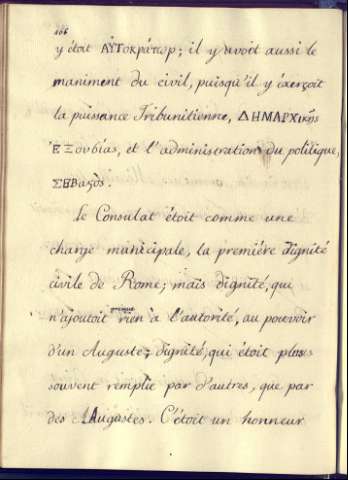 166
y étoit ΑΥΤΟΚράτωρ; il y avoit aussi le
maniment du civil, puisqu'il y éxerçoit
la puissance Tribunitienne, ΔΗΜΑΡΧικῆς
ἘΞουσίας, et l'administration du politique,
ΣΕΒαςός.
Le Consulat étoit comme une
charge municipale, la première dignité
civile de Rome; mais dignité, qui
n'ajoutoit presque rien à l'autorité, au pouvoir
d'un Auguste; dignité, qui étoit plus
souvent remplie par d'autres, que par
des Augustes. C'étoit un honneur